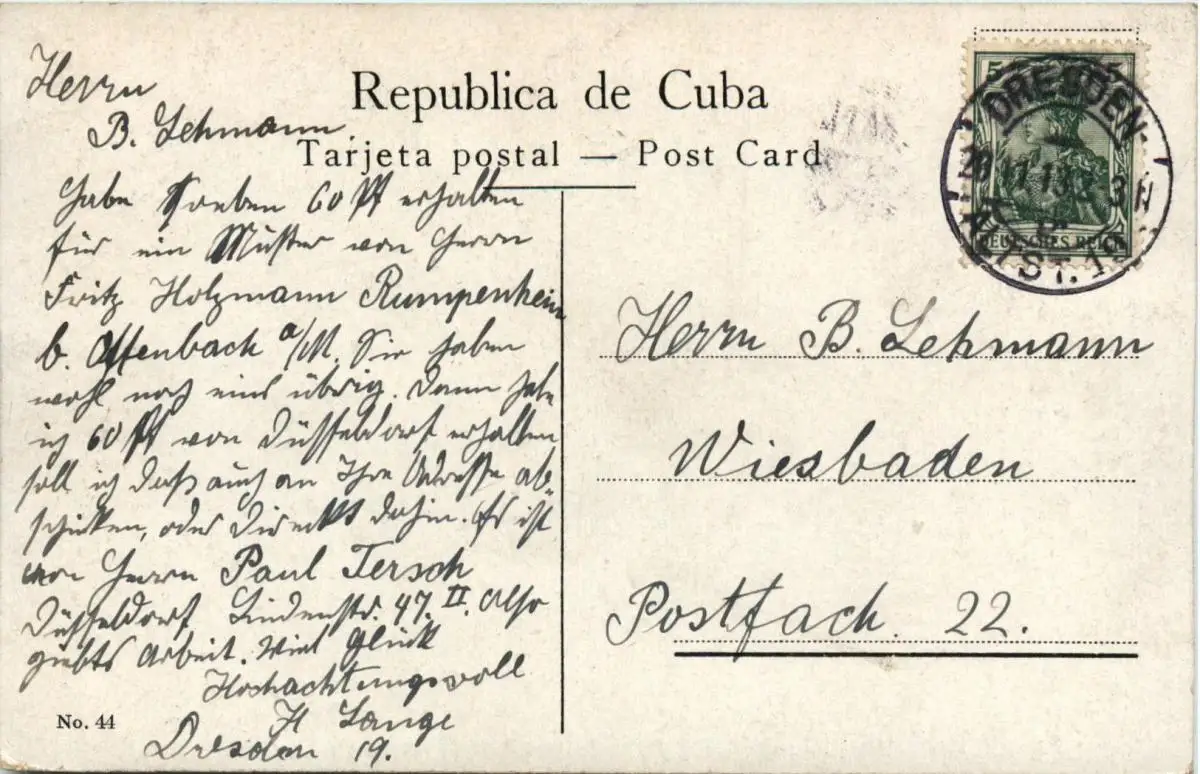 Republica de Cuba
Tarjeta postal — Post Card
Herrn
B. Lehmann.
Habe soeben 60 Pf erhalten
für ein Muster von Herrn
Fritz Holzmann Rumpenheim
b. Offenbach a/M. Sie haben
wohl noch eins übrig. Dann habe
ich 60 Pf von Düsseldorf erhalten
soll ich das auch an Ihre Adresse ab-
schicken, oder direckt dahin. Es ist
von Herrn Paul Tersch
Düsseldorf Lindenstr. 47. II. Also
giebts Arbeit. Viel Glück
Hochachtungsvoll
H Lange
Dresden 19.
No. 44
DRESDEN-
ALTST. 19
DEUTSCHES REICH
5
Herrn B. Lehmann
Wiesbaden
Postfach. 22.